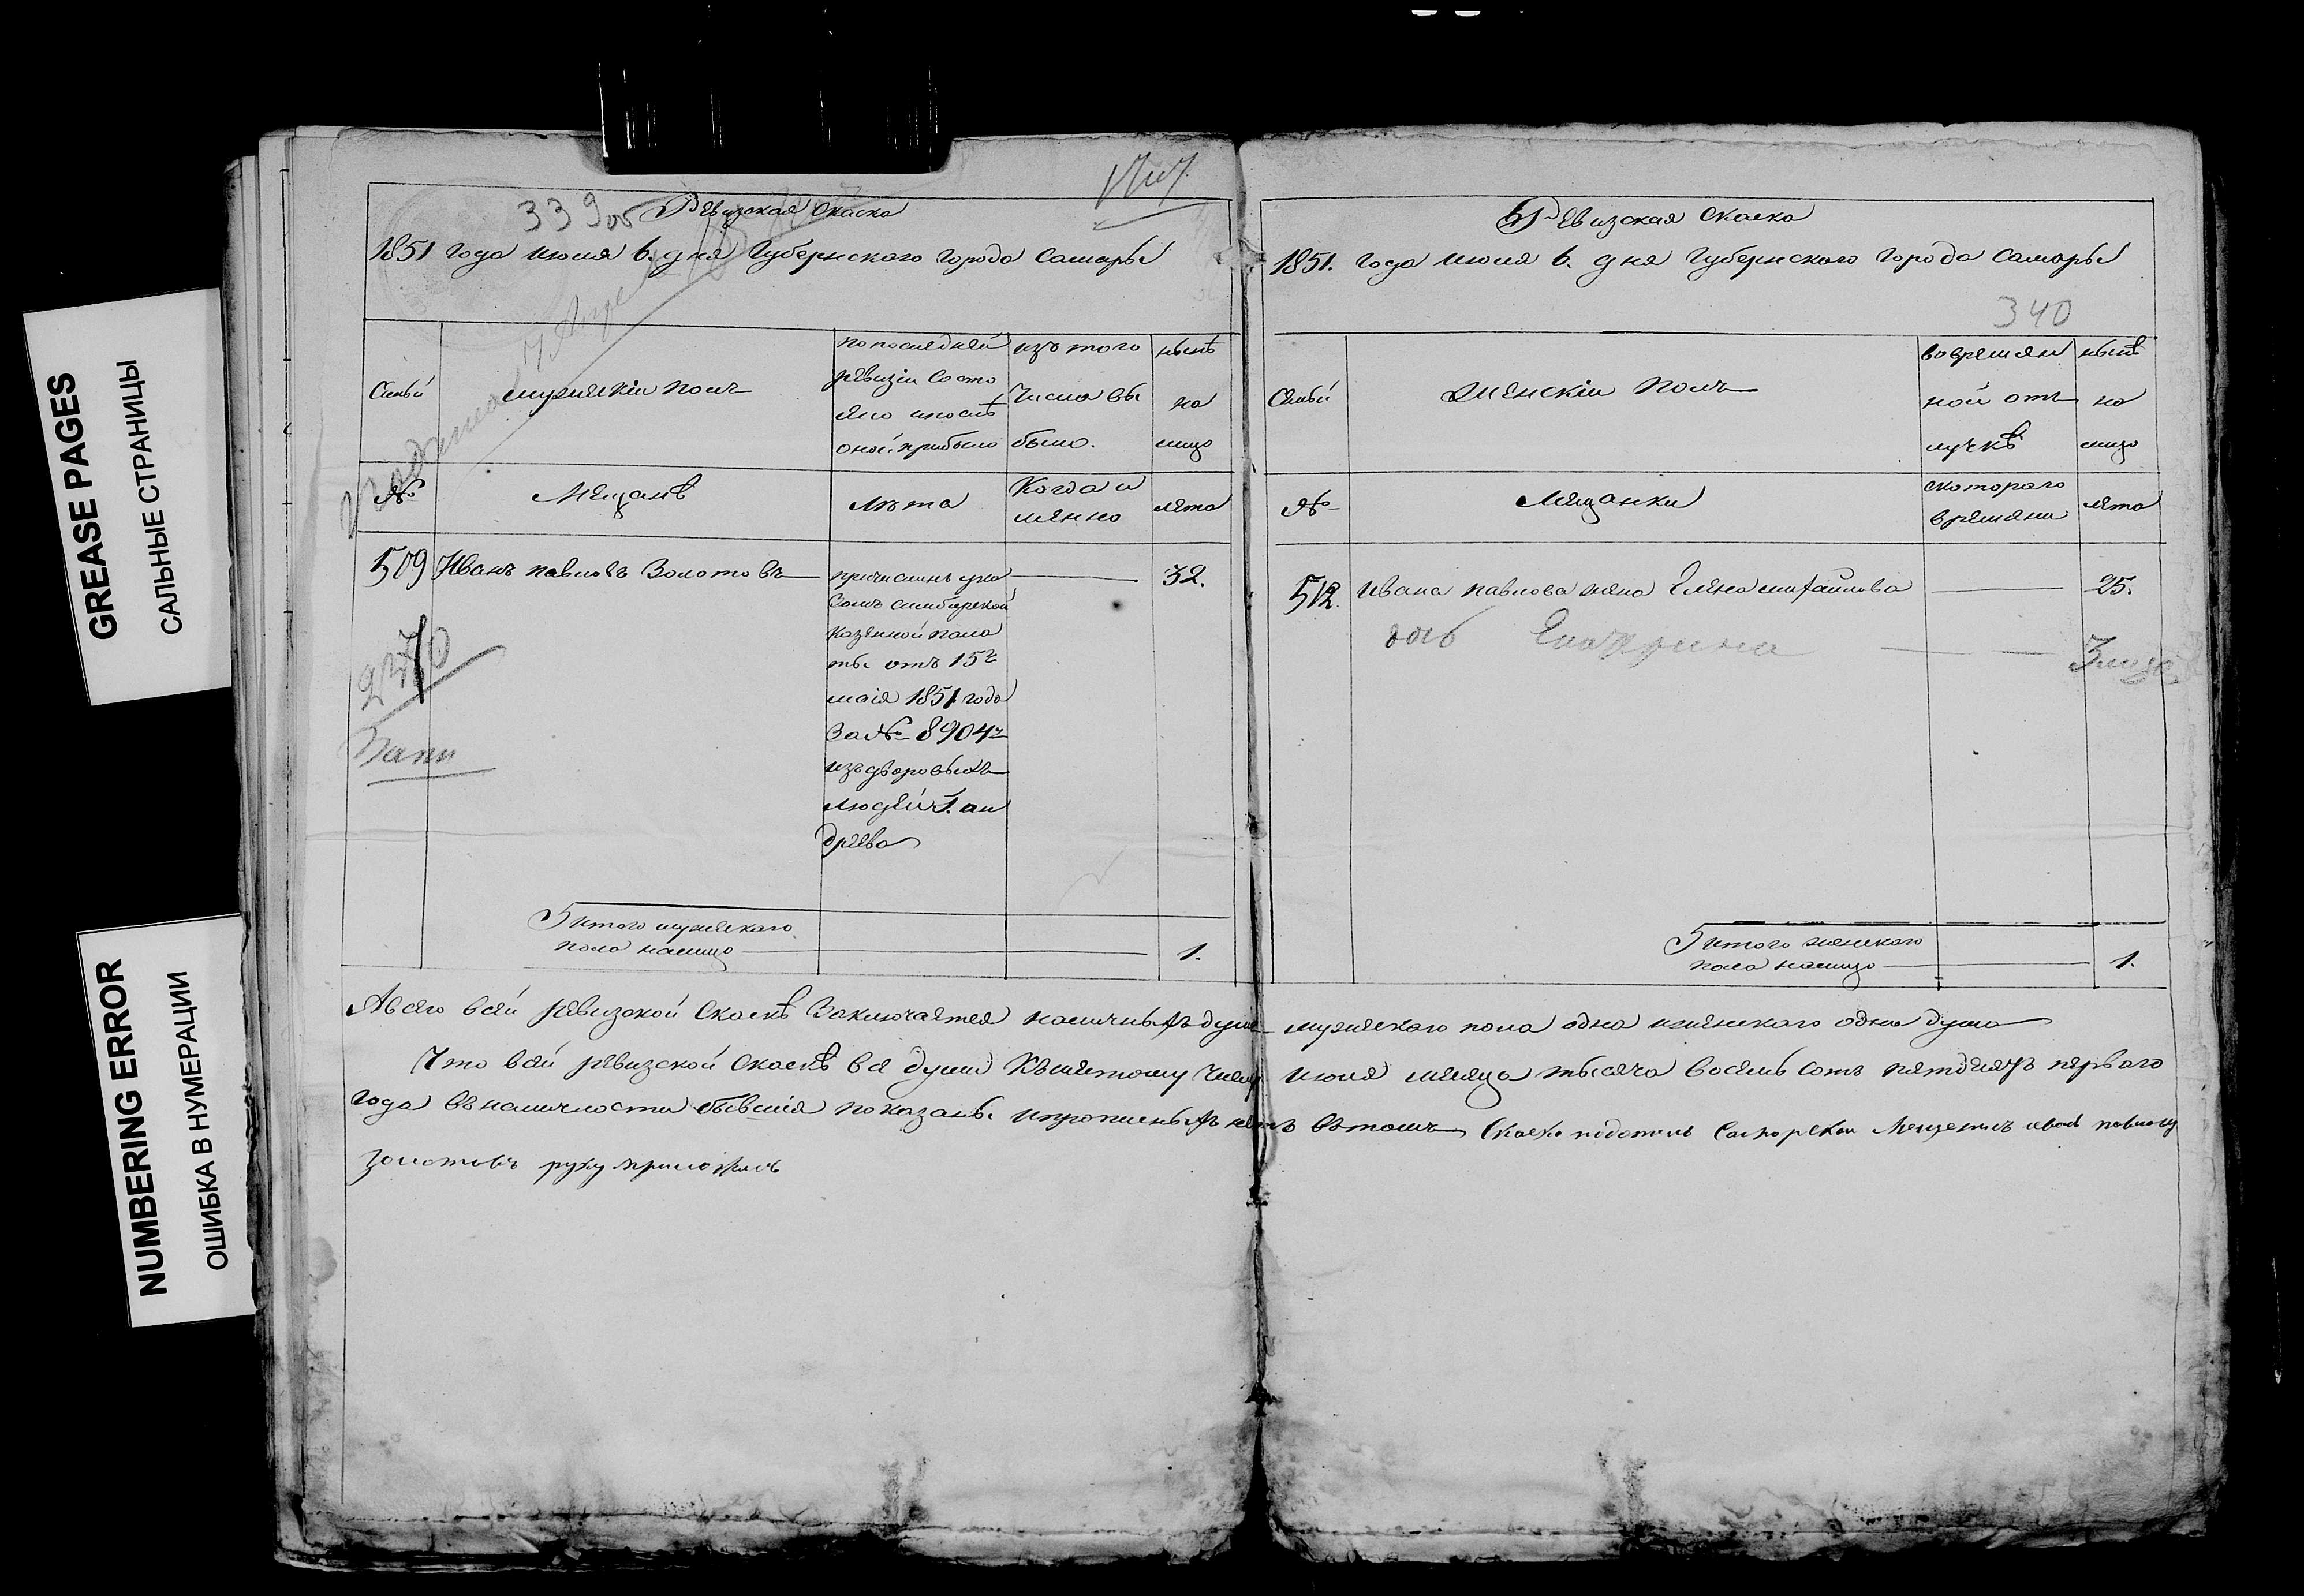 GREASE PAGES
САЛЬНЫЕ СТРАНИЦЫ
NUMBERING ERROR
ОШИБКА В НУМЕРАЦИИ
339об Ревизская скаска
1851 года июля 6. дня Губернского города Самары
Семьи
мужескiй полъ
по последней
ревизiи состо
яло и после
оной прибыло
изъ того
числа вы
было.
нынѣ
на
лицо
№
Мещанѣ
лѣта
Когда и
мянно
лета
509 Иванъ павловъ Золотовъ
причисленъ ука
зомъ симбирской
казенной пала
ты отъ 15го
маiя 1851 года
За № 8904м
изъ дворовыхъ
людей Г. ан
древа
32.
2370
Итого мужескаго
пола налицо
1.
Ревизская скаска
1851. года июля 6. дня Губернского города Самары
340
Семьи
Женскiй полъ
во времян
ной отъ
лучкѣ
нынѣ
на
лицо
№
Мещанки
скотораго
времяни
лета
512. Ивана павлова жена Елена михайлова 25.
доч Екатерина
Итого женскаго
пола налицо
1.
А всего всей ревизской скаскѣ заключается наличныхъ душъ мужескаго пола одна и женскаго одна душа
Что всей ревизской скаскѣ все души къ шестому числу июля месяца тысяча восемь сотъ пятдесятъ перваго
года въ наличности бывшiя показаны. и прописныхъ нетъ въ томъ скаска Самарской Мещенинъ иванъ павловъ
золотовъ руку приложилъ